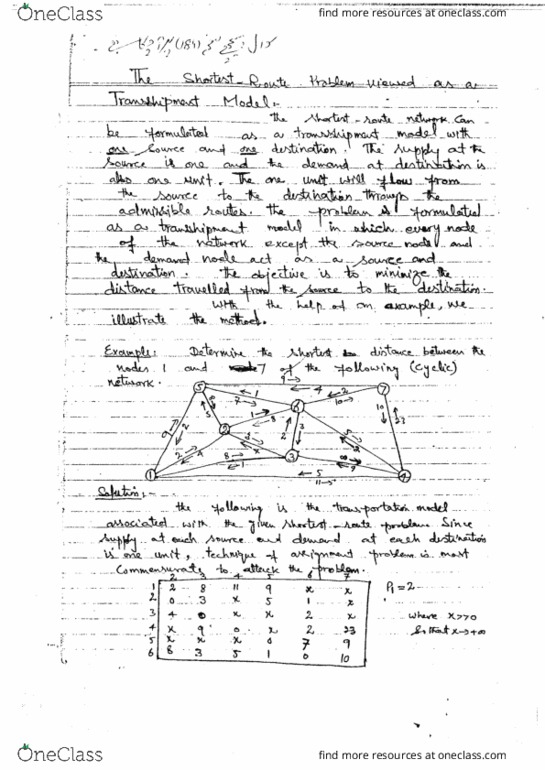 OneClass
find more resources at oneclass.com
(184)
The Shortest-Route Problem viewed as a
Transhipment Model:-
the shortest-route network can
be formulated as a transhipment model with
one source and one destination. The supply at the
source is one and the demand at destination is
also one unit. The one unit will flow from
the source to the destination through the
admissible routes. the problem is formulated
as a transhipment model in which every node
of the network except the source node and
the demand node act as a source and
destination. The objective is to minimize the
distance travelled from the source to the destination.
with the help of an example, we
illustrate the method.
Example: Determine the shortest distance between the
nodes 1 and 7 of the following (cyclic)
network.
5 7
6
2
3
1 4
Solution:-
the following is the transportation model
associated with the given shortest-route problem. Since
supply at each source and demand at each destination
is one unit, technique of assignment problem is most
commensurate to attack the problem.
2 3 4 5 6 7
1 2 8 11 9 x x P1 = 2
2 0 3 x 5 1 x
3 4 0 x x 2 x where x>0
4 x 9 0 x 2 23 So that x→+∞
5 x x x 0 7 9
6 8 3 5 1 0 10
OneClass
find more resources at oneclass.com